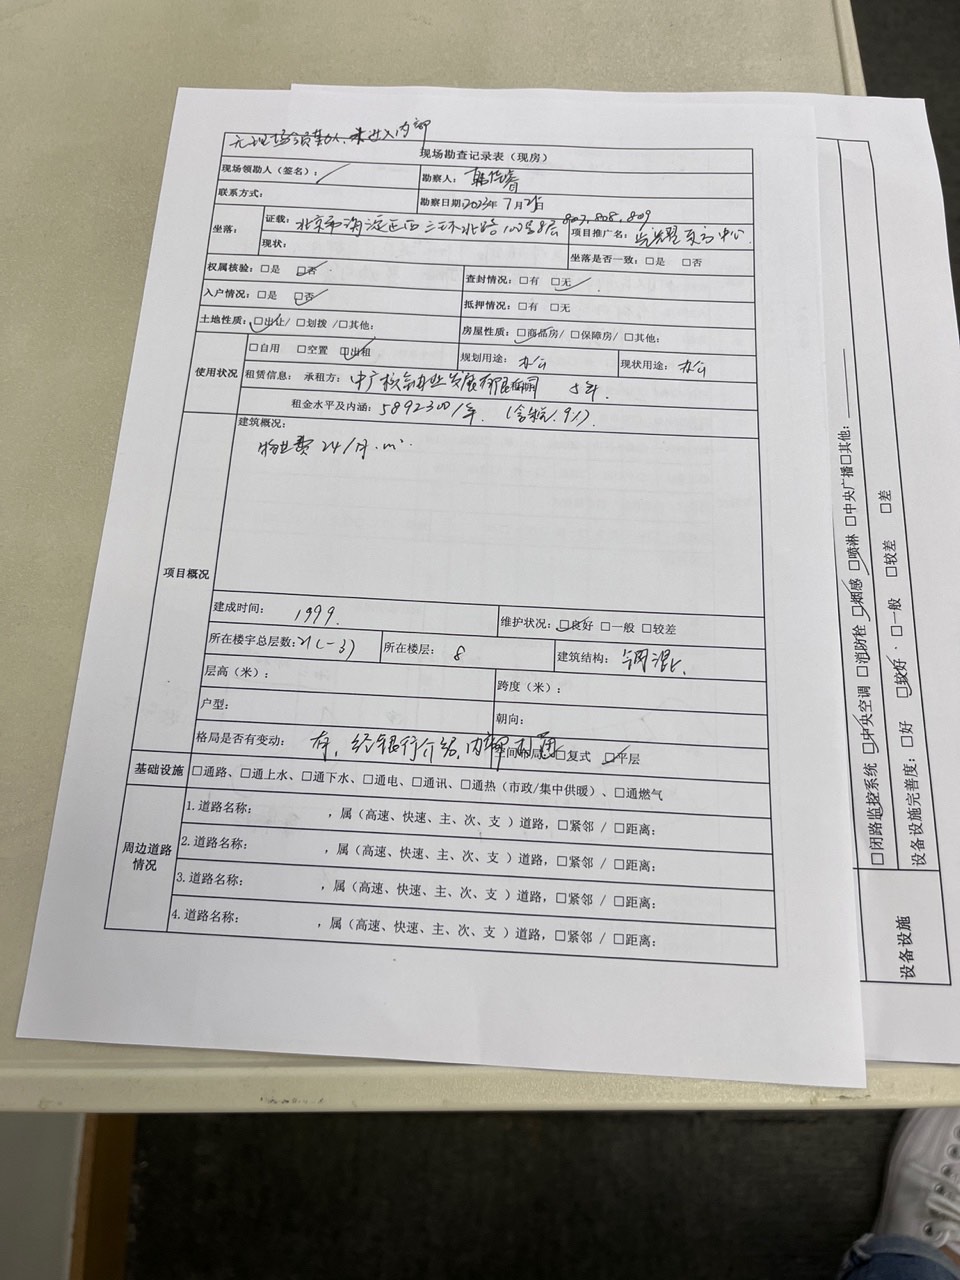 无现场领勘人,未进入内部
现场勘查记录表(现房)
现场领勘人(签名): 勘察人:
联系方式: 勘察日期:2023年7月2日
坐落: 证载:北京市海淀区西三环北路100号8层807,808,809 项目推广名:中心
现状: 坐落是否一致:□是 □否
权属核验:□是 ☑否 查封情况:□有 ☑无
入户情况:□是 ☑否 抵押情况:□有 □无
土地性质:☑出让/□划拨/□其他: 房屋性质:☑商品房/□保障房/□其他:
使用状况 □自用 □空置 ☑出租 规划用途:办公 现状用途:办公
租赁信息:承租方:中广核 发展有限 5年.
租金水平及内涵:5892300/年.(含税,9%).
项目概况 建筑概况:
物业费24/月.㎡.
建成时间:1999. 维护状况:☑良好 □一般 □较差
所在楼宇总层数:21(-3) 所在楼层:8 建筑结构:钢混.
层高(米): 跨度(米):
户型: 朝向:
格局是否有变动:有,经银行介绍,内部打通 空间布局:□复式 ☑平层
基础设施 □通路、□通上水、□通下水、□通电、□通讯、□通热(市政/集中供暖)、□通燃气
周边道路情况 1.道路名称: ,属(高速、快速、主、次、支)道路,□紧邻 / □距离:
2.道路名称: ,属(高速、快速、主、次、支)道路,□紧邻 / □距离:
3.道路名称: ,属(高速、快速、主、次、支)道路,□紧邻 / □距离:
4.道路名称: ,属(高速、快速、主、次、支)道路,□紧邻 / □距离:
设备设施 ☑闭路监控系统 ☑中央空调 ☑消防栓 ☑烟感 ☑喷淋 □中央广播 □其他:
设备设施完善度:□好 ☑较好 □一般 □较差 □差